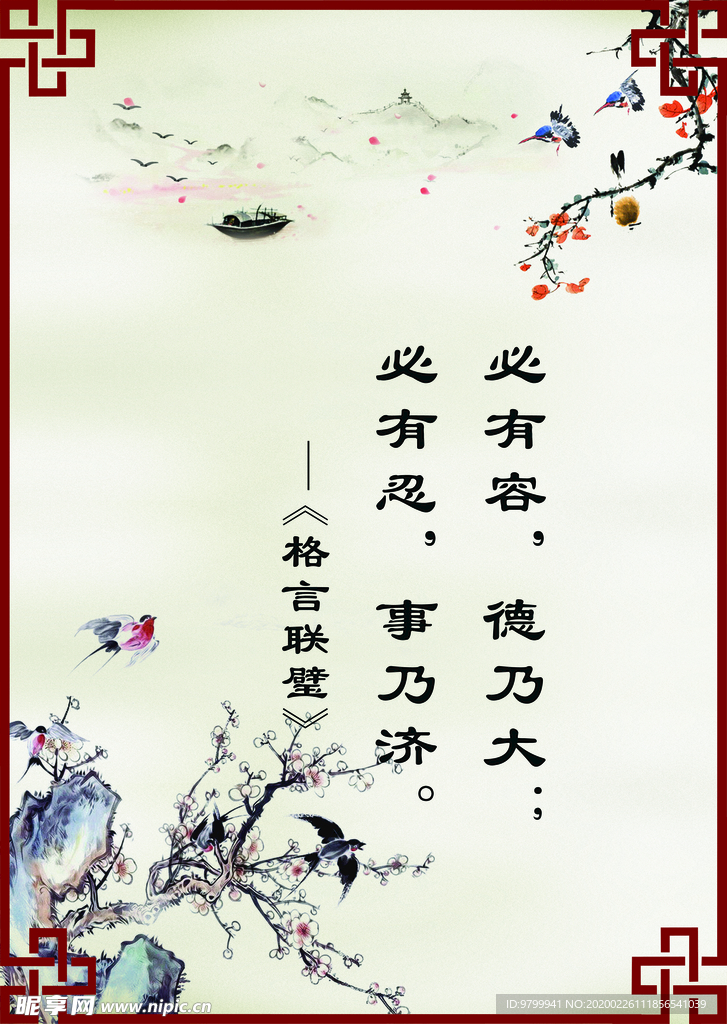 必有容，德乃大；
必有忍，事乃济。
——《格言联璧》
昵享网 www.nipic.cn
ID:9799941 NO:20200226111856541039